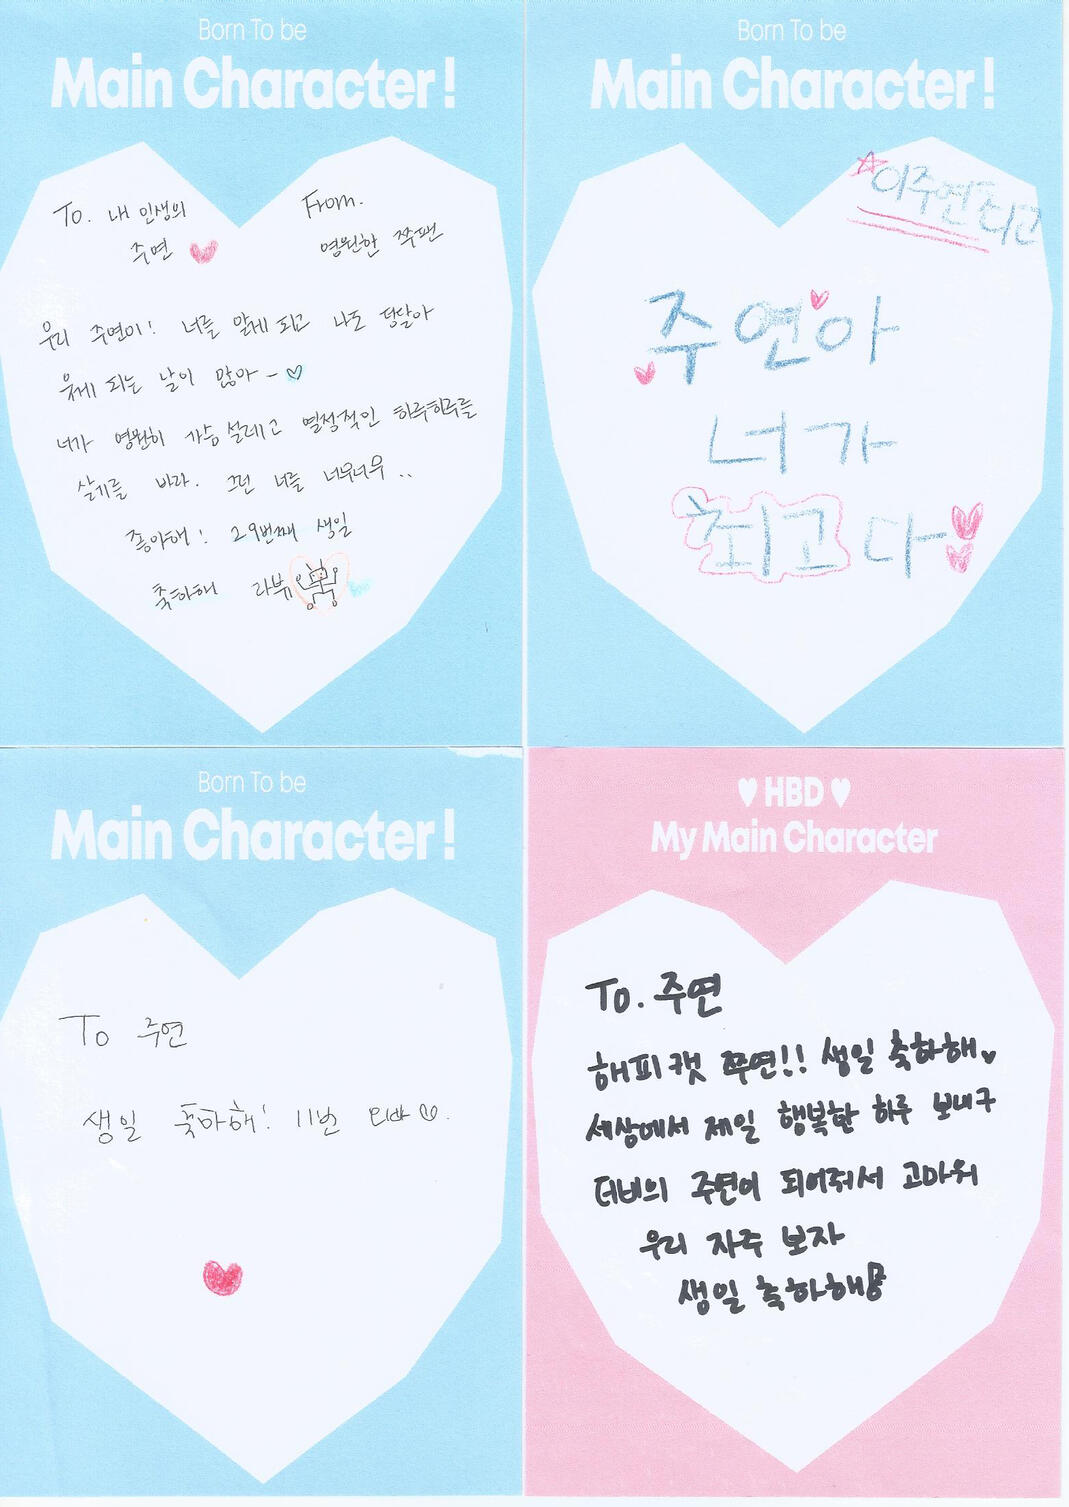 Born To be
Main Character!
To. 내 인생의
주연
From.
영원한 쭈팬
우리 주연이! 너를 알게 되고 나도 덩달아
웃게 되는 날이 많아~
너가 영원히 가슴 설레고 열정적인 하루하루를
살기를 바라. 그런 너를 너무너무..
좋아해! 29번째 생일
축하해 라뷰
Born To be
Main Character!
이주연 최고
주연아
너가
최고다
Born To be
Main Character!
To 주연
생일 축하해! 11번
♥ HBD ♥
My Main Character
To. 주연
해피캣 쭈연!! 생일 축하해♥
세상에서 제일 행복한 하루 보내구
더비의 주연이 되어줘서 고마워
우리 자주 보자
생일 축하해